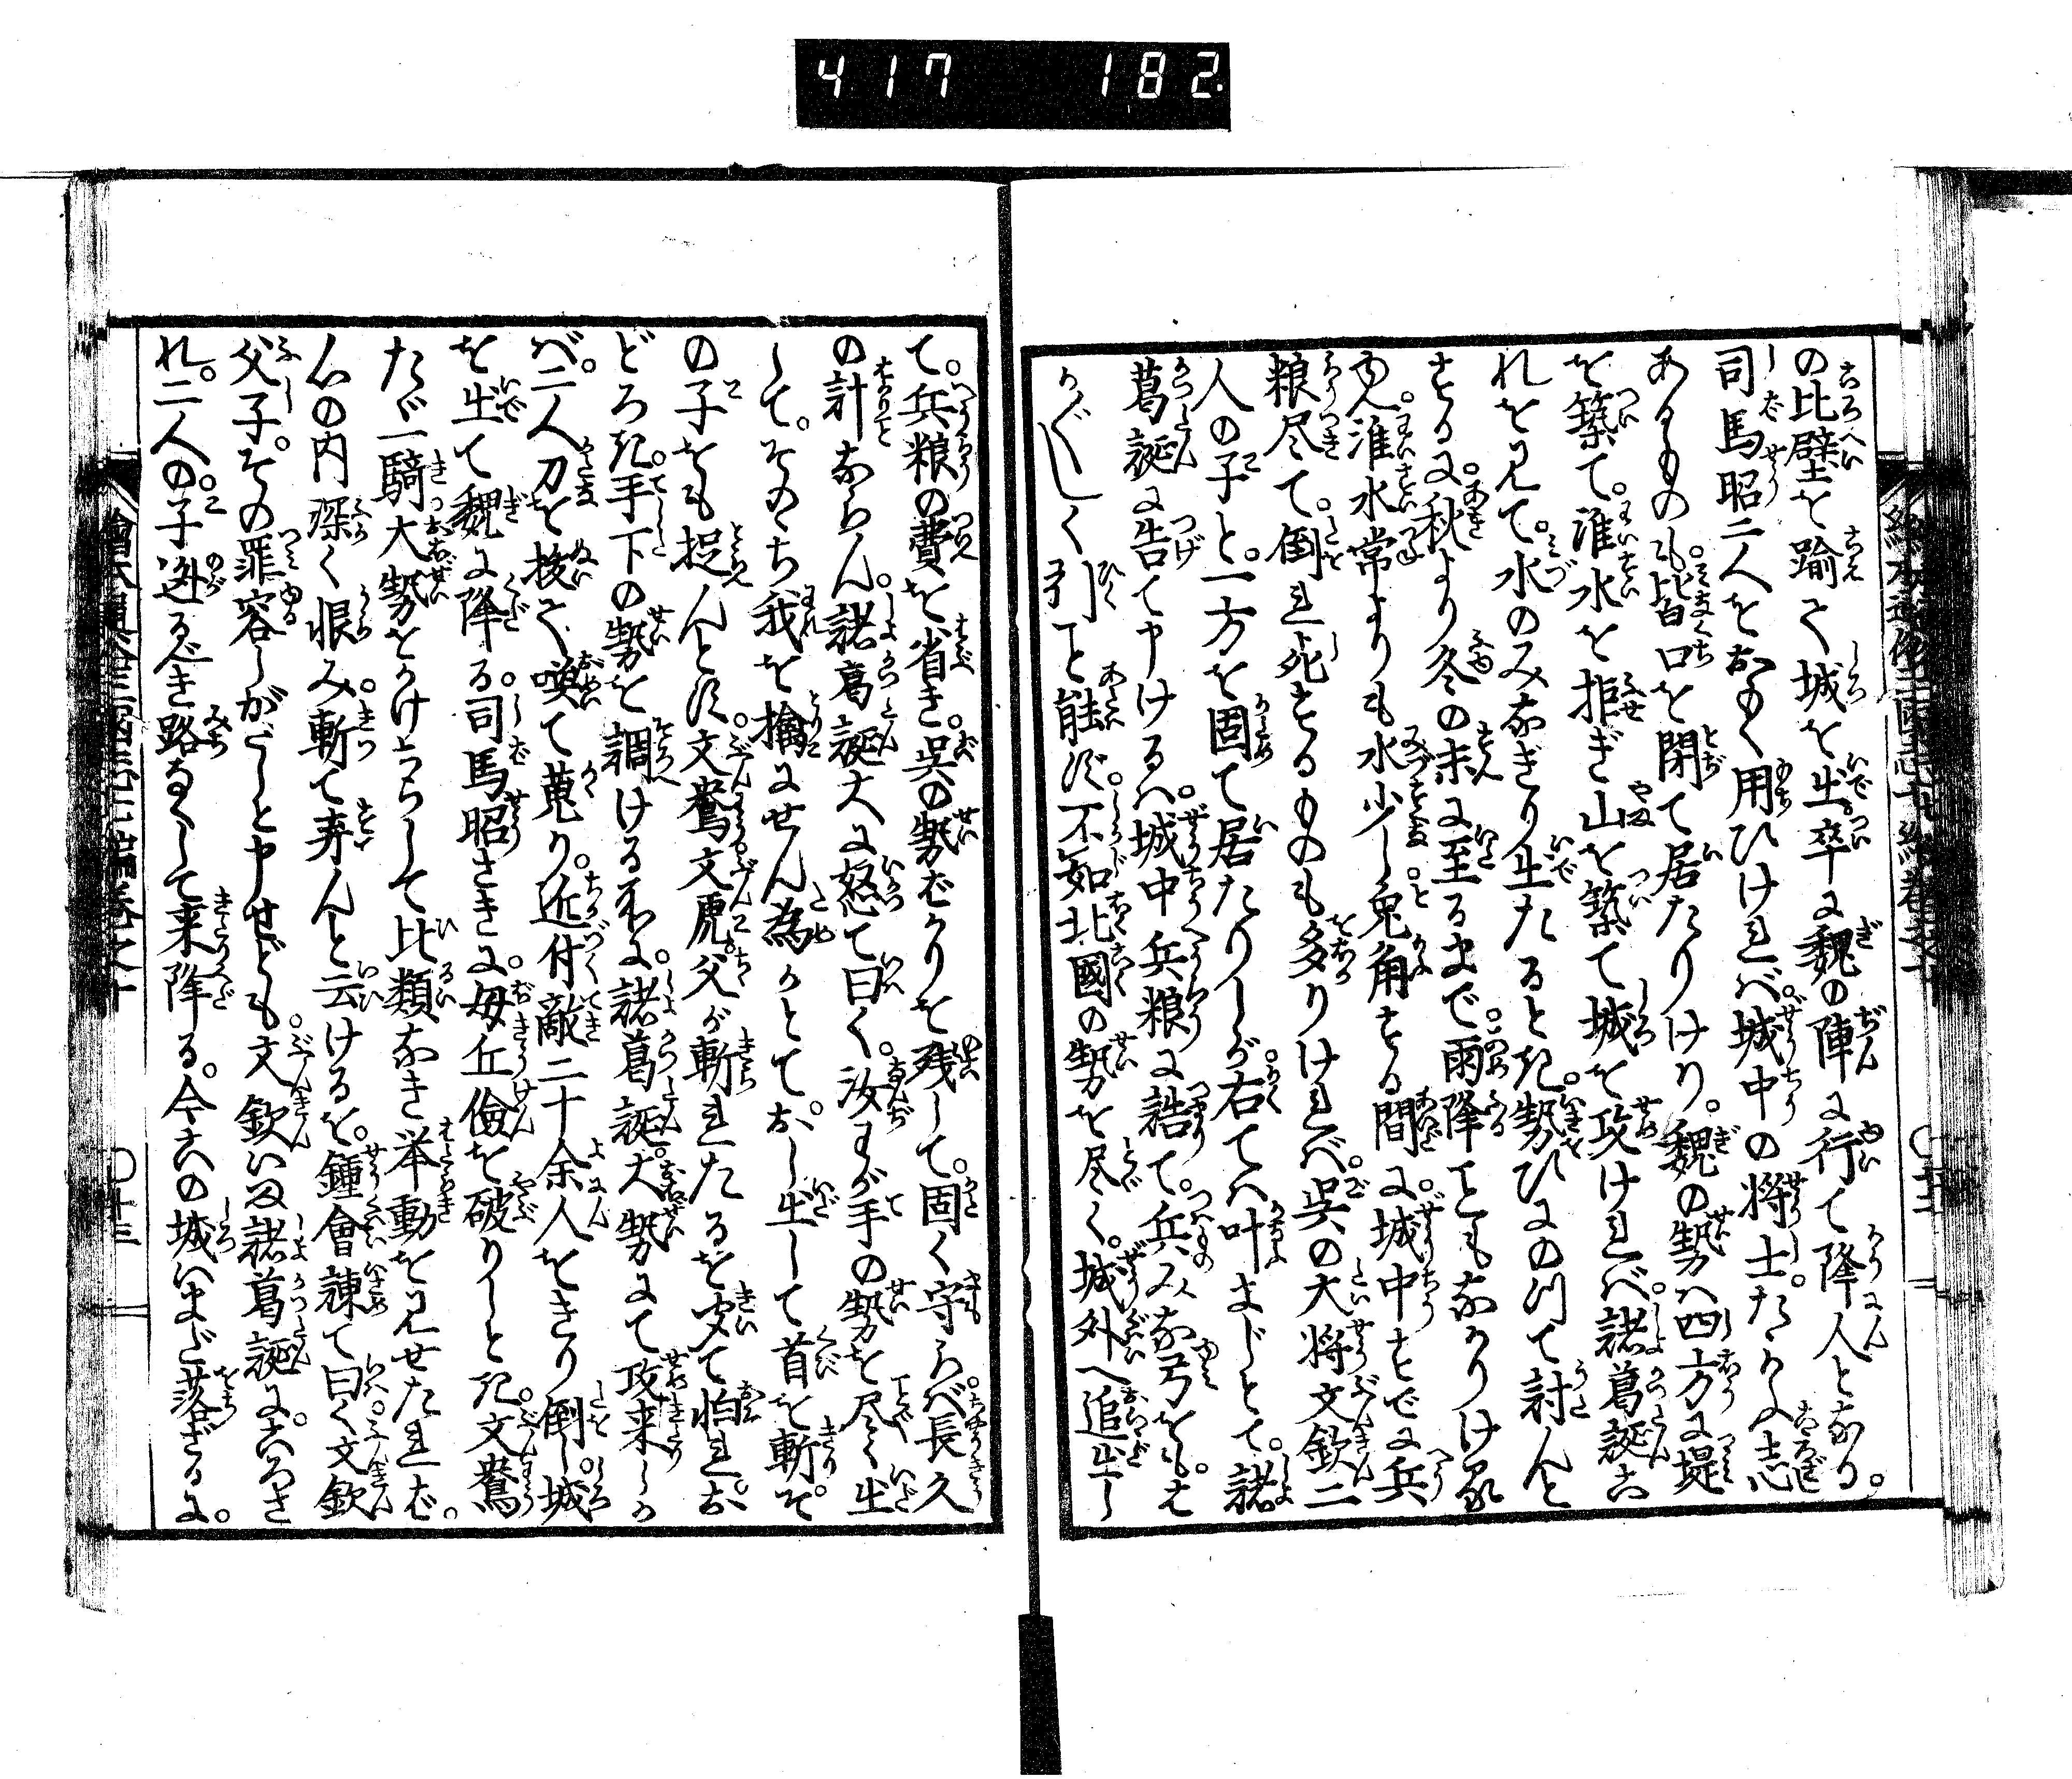 417 182
の比壁を踰て城を出。卒に魏の陣に行て降人となる。
司馬昭二人をおもく用ひければ。城中の将士。たかふ志
あるもの也。皆口を閉て居たりけり。魏の勢ハ四方に堤
を築て。淮水を拒ぎ山を築て城を攻ければ。諸葛誕こ
れを見て。水のみなぎり出たるとき。勢ひにのつて討んと
する に。秋より冬の末に至るまで。雨降ことも なかりけれ
ば。淮水常よりも水少し。兎角する間に。城中すでに兵
粮尽て。倒れ死するものも多りければ。呉の大将文欽二
人の子と。一方を固て居たりしが。右てハ叶まじとて。諸
葛誕に告て申けるハ。城中兵粮に詰て。兵みな弓をも。は
かばかしく引こと能ず。不如北國の勢を尽く。城外へ追出し
て。兵粮の費を省き。呉の勢ばかりを残して。固く守らバ。長久
の計ならん。諸葛誕大に怒て曰く。汝わが手の勢を尽く出
して。そのゝち我を擒にせん為かとて。おし出して首を斬。そ
の子をも捉んとす。文鴦文虎。父が斬れたるを聞て怕れ。お
どろき。手下の勢を調ける所に。諸葛誕。大勢にて攻来しか
バ。二人刀を抜て、喚て蒐り。近付敵二十余人をきり倒し。城
を出て魏に降る。司馬昭さきに。毋丘儉を破りしとき。文鴦
たゞ一騎大勢をかけちらして比類なき挙動を見せたれば。
心の内深く恨み。斬て弃んと云けるを。鍾會諌て曰く。文欽
父子。その罪容しがたしと申せども。文欽ハはや諸葛誕に。ころさ
れ。二人の子。迯るべき路なくして来降る。今この城いまだ落ざるに。
繪本通俗三國志七編巻之十